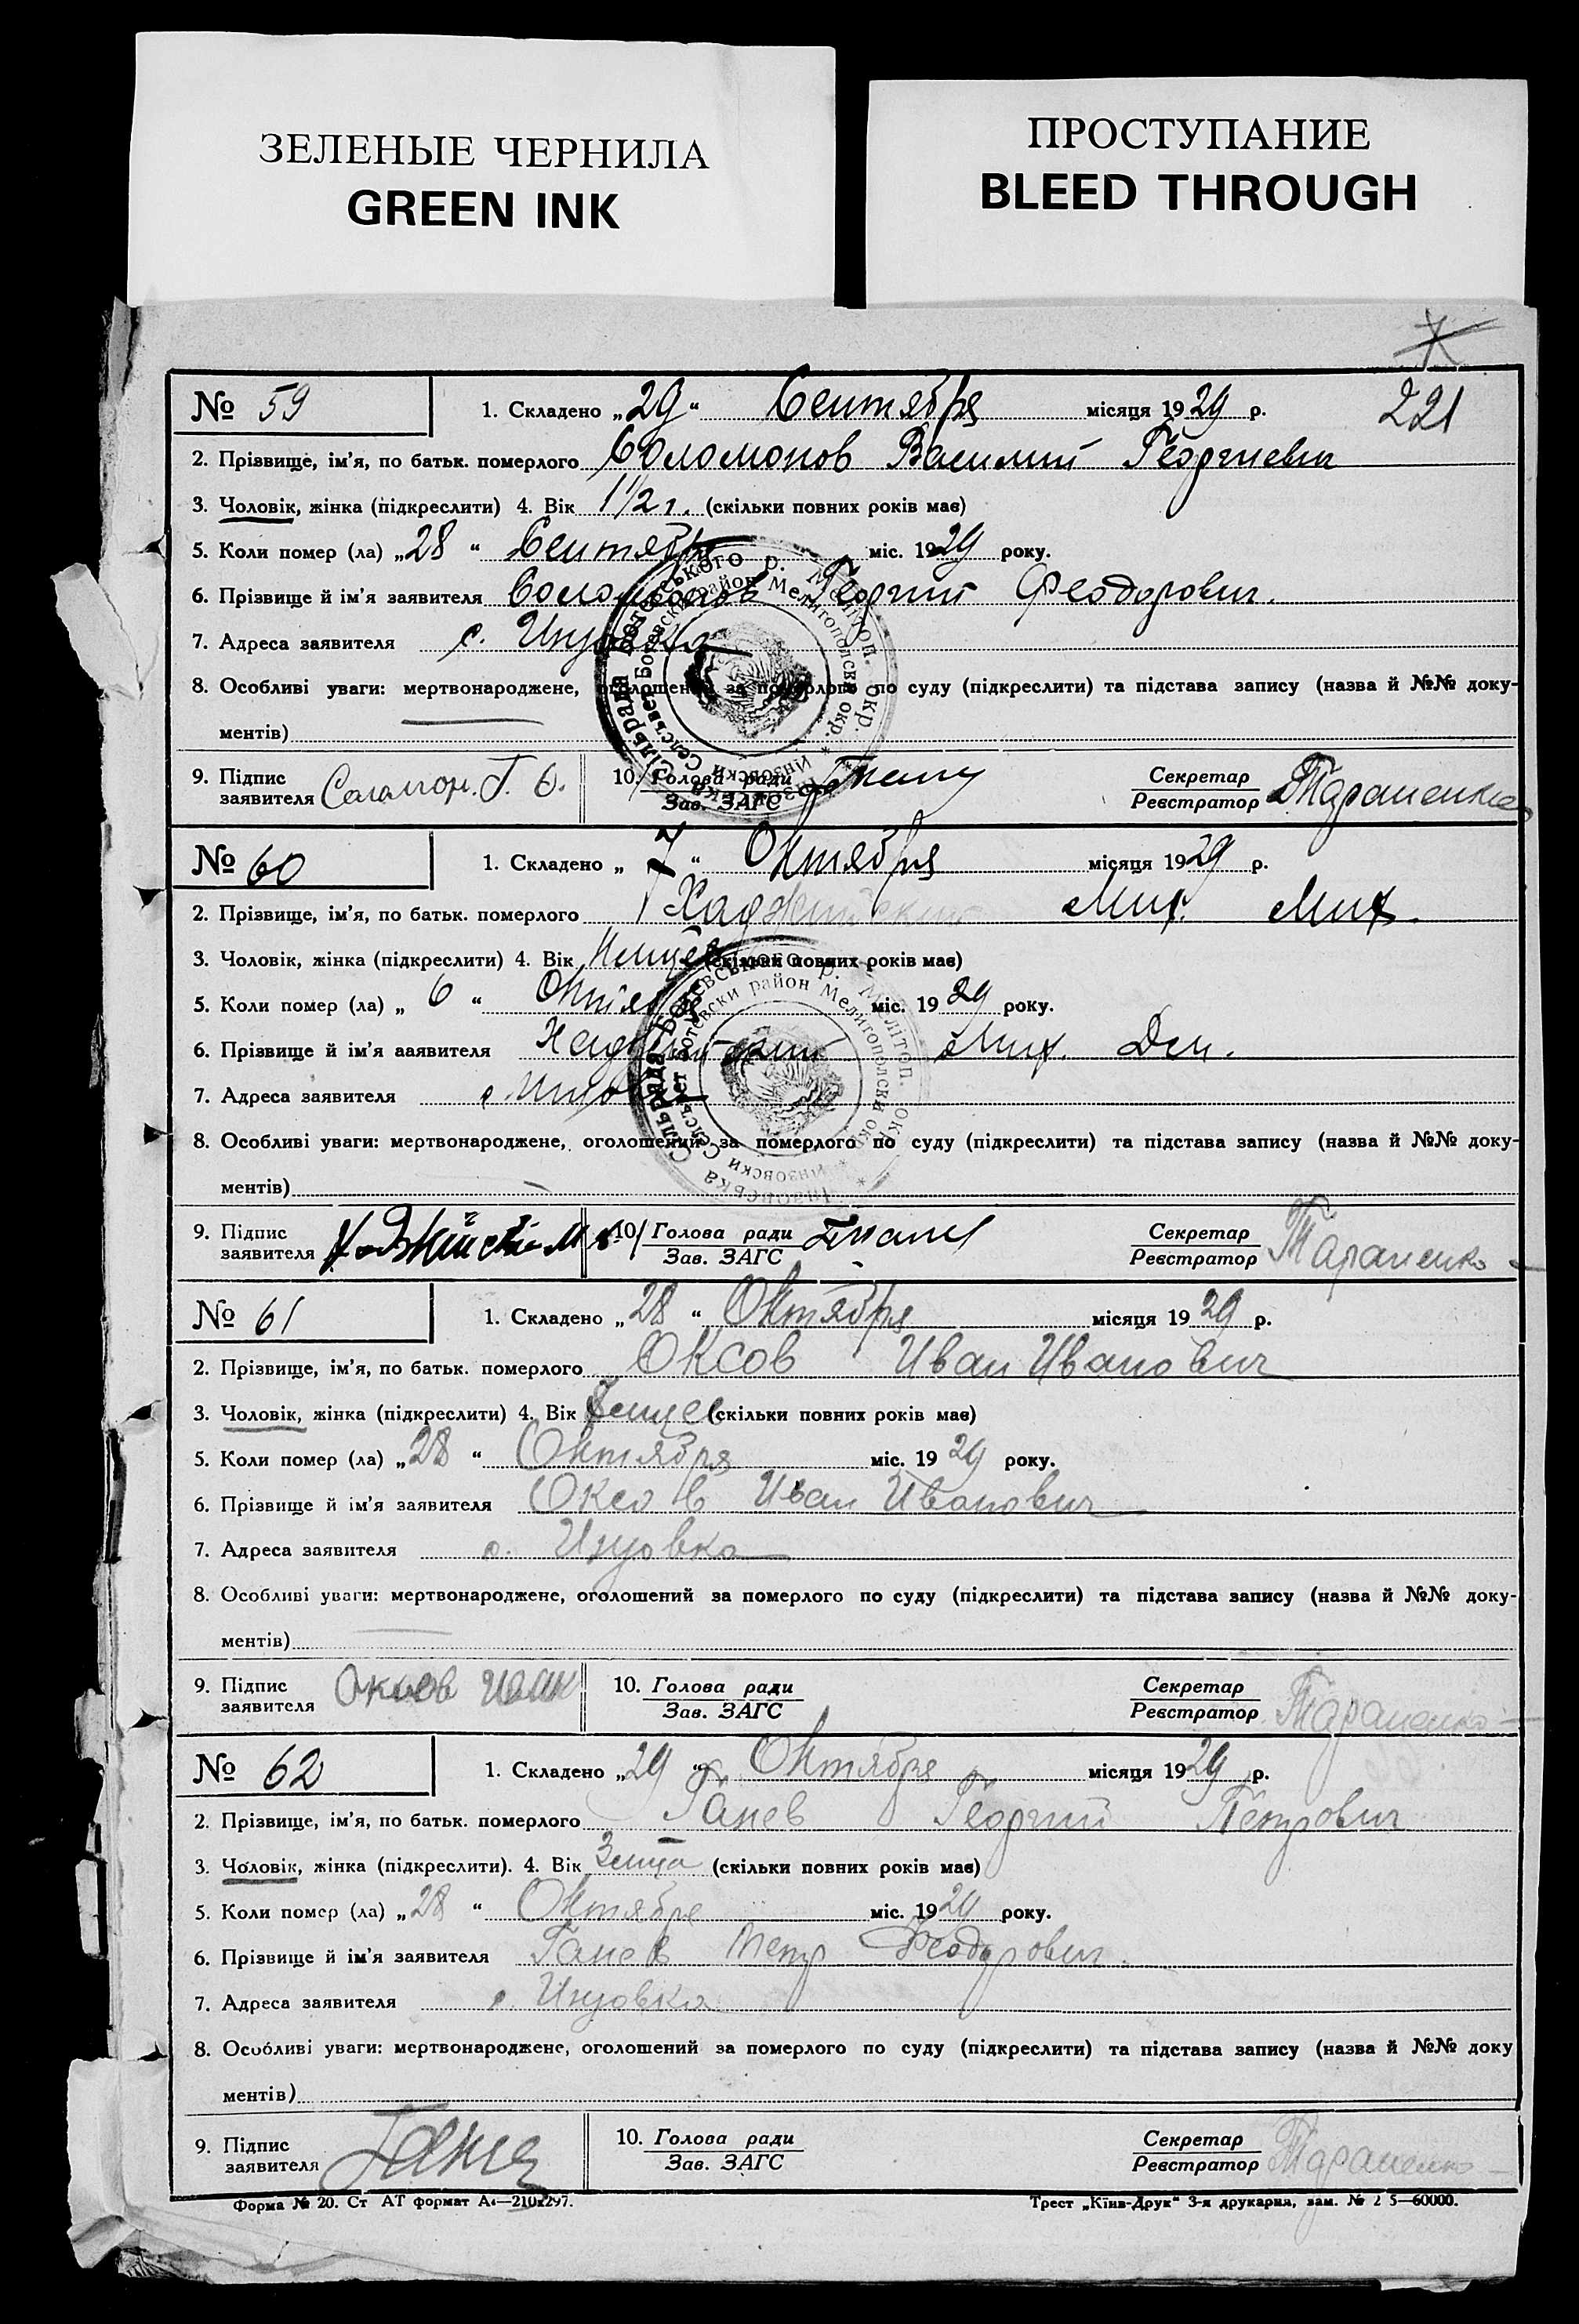 ЗЕЛЕНЫЕ ЧЕРНИЛА
GREEN INK
ПРОСТУПАНИЕ
BLEED THROUGH
221
№ 59 1. Складено „29“ Сентября місяця 1929 р.
2. Прізвище, ім’я, по батьк. померлого Соломонов Василий Георгиевич
3. Чоловік, жінка (підкреслити) 4. Вік 1 1/2 г. (скільки повних років має)
5. Коли помер (ла) „28“ Сентября міс. 1929 року.
6. Прізвище й ім’я заявителя Соломонов Георгий Феодорович.
7. Адреса заявителя с. Инзовка
8. Особливі уваги: мертвонароджене, оголошений за померлого по суду (підкреслити) та підстава запису (назва й №№ доку-
ментів)
9. Підпис заявителя Саламон. Г. Ф. 10. Голова ради Зав. ЗАГС Секретар Реєстратор Тараненко
№ 60 1. Складено „7“ Октября місяця 1929 р.
2. Прізвище, ім’я, по батьк. померлого Хаджийский Мих. Мих.
3. Чоловік, жінка (підкреслити) 4. Вік (скільки повних років має)
5. Коли помер (ла) „6“ Октября міс. 1929 року.
6. Прізвище й ім’я ааявителя Хаджийский Мих. Дем.
7. Адреса заявителя с Инзовка
8. Особливі уваги: мертвонароджене, оголошений за померлого по суду (підкреслити) та підстава запису (назва й №№ доку-
ментів)
9. Підпис заявителя Хаджийский М 10. Голова ради Зав. ЗАГС Секретар Реєстратор Тараненко
№ 61 1. Складено „28“ Октября місяця 1929 р.
2. Прізвище, ім’я, по батьк. померлого Оксов Иван Иванович
3. Чоловік, жінка (підкреслити) 4. Вік (скільки повних років має)
5. Коли помер (ла) „28“ Октября міс. 1929 року.
6. Прізвище й ім’я заявителя Оксов Иван Иванович
7. Адреса заявителя с. Инзовка
8. Особливі уваги: мертвонароджене, оголошений за померлого по суду (підкреслити) та підстава запису (назва й №№ доку-
ментів)
9. Підпис заявителя Оксов Иван 10. Голова ради Зав. ЗАГС Секретар Реєстратор Тараненко
№ 62 1. Складено „29“ Октября місяця 1929 р.
2. Прізвище, ім’я, по батьк. померлого Ганев Георгий Петрович
3. Чоловік, жінка (підкреслити). 4. Вік 3 м-ца (скільки повних років має)
5. Коли помер (ла) „28“ Октября міс. 1929 року.
6. Прізвище й ім’я заявителя Ганев Петр Феодорович.
7. Адреса заявителя с. Инзовка
8. Особливі уваги: мертвонароджене, оголошений за померлого по суду (підкреслити) та підстава запису (назва й №№ доку
ментів)
9. Підпис заявителя Ганев 10. Голова ради Зав. ЗАГС Секретар Реєстратор Тараненко
Форма № 20. Ст АТ формат А4—210x297. Трест „Київ-Друк“ 3-я друкарня, зам. № 2 5—60000.